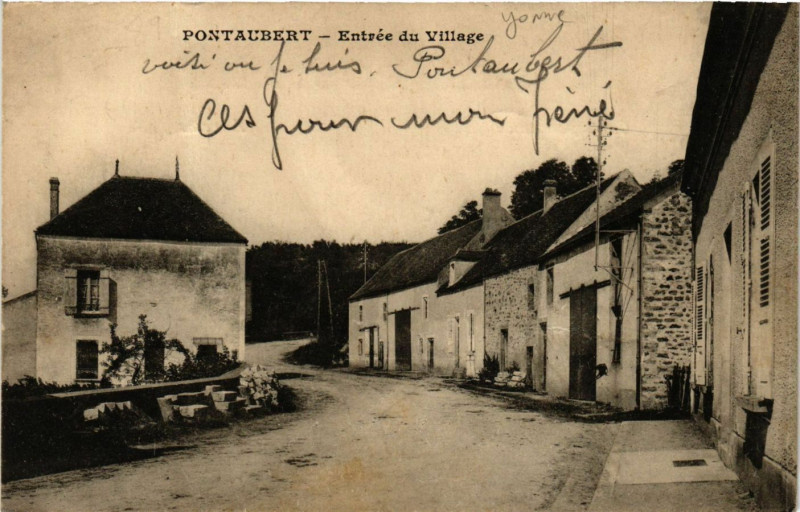 PONTAUBERT — Entrée du Village
yonne
voisi ou je suis. Pontaubert
Ces pour mon frère